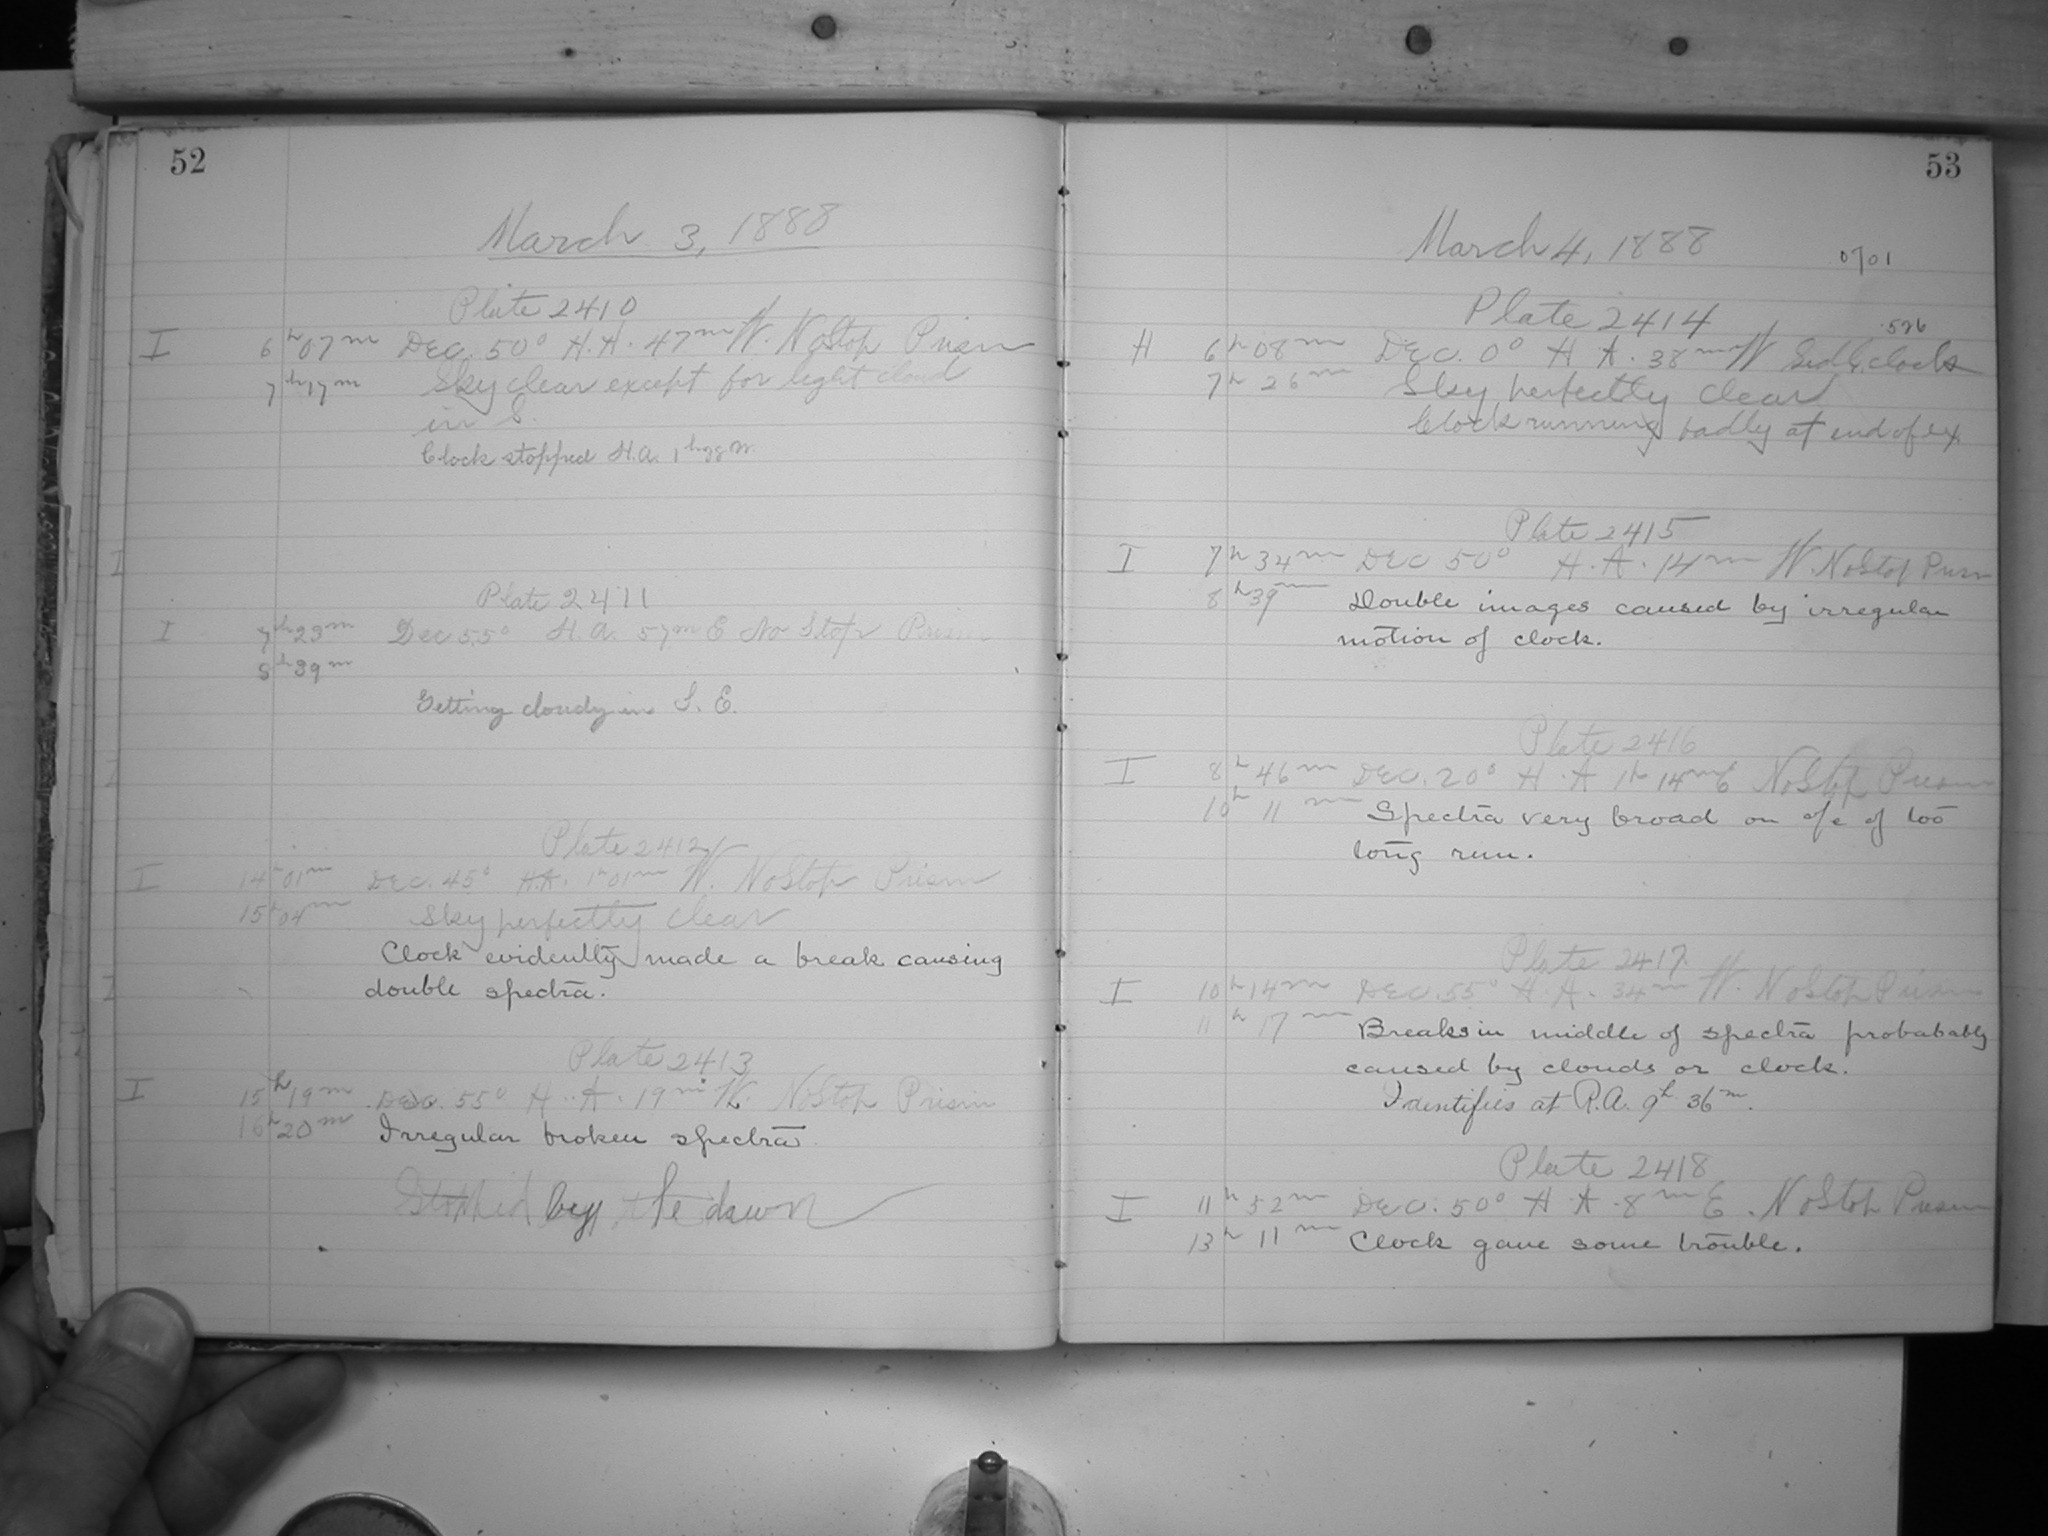 52
March 3, 1888
Plate 2410
I 6h 07m Dec. 50° H.A. 47m W. No Stop Prism
7h 17m Sky clear except for light cloud
in S.
Clock stopped H.A. 1h
Plate 2411
I 7h 23m Dec 55° H.A. 57m E No Stop Prism
8h 39m
Getting cloudy in S. E.
Plate 2412
I 14h 01m Dec. 45° H.A. 1h 01m W. No Stop Prism
15h 04m Sky perfectly clear
Clock evidently made a break causing
double spectra.
Plate 2413
I 15h 19m Dec. 55° H.A. 19m W. No Stop Prism
16h 20m Irregular broken spectra
Stopped by the dawn
53
March 4, 1888
0701
Plate 2414
.526
H 6h 08m Dec. 0° H A. 38m W Sid clock
7h 26m Sky perfectly clear
Clock running badly at end of ex.
Plate 2415
I 7h 34m Dec 50° H.A. 14m W. No Stop Prism
8h 39m Double images caused by irregular
motion of clock.
Plate 2416
I 8h 46m Dec. 20° H.A 1h 14m E No Stop Prism
10h 11m Spectra very broad on a/c of too
long run.
Plate 2417
I 10h 14m Dec. 55° H.A. 34m W. No Stop Prism
11h 17m Breaks in middle of spectra probabably
caused by clouds or clock.
Identifies at R.A. 9h 36m.
Plate 2418
I 11h 52m Dec. 50° H A. 8m E. No Stop Prism
13h 11m Clock gave some trouble.